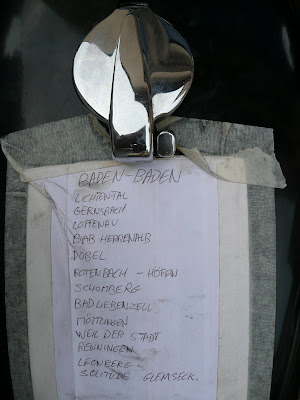 BADEN-BADEN
LICHTENTAL
GERNSBACH
LOFFENAU
BAB HERRENALB
DOBEL
ROTENBACH - HÖFEN
SCHÖMBERG
BAD LIEBENZELL
MÖTTLINGEN
WEIL DER STADT
RENNINGEN
LEONBERG
SOLITUDE GLEMSECK.